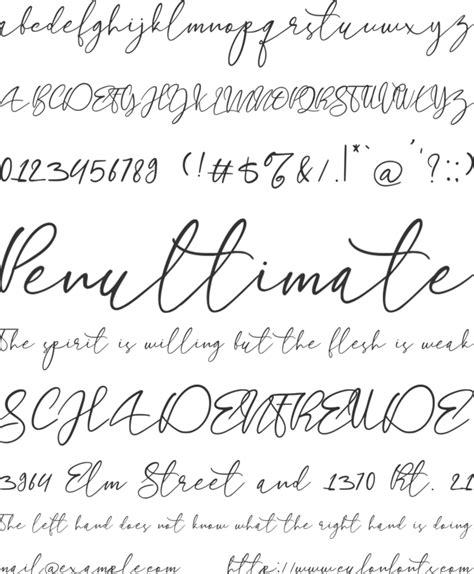 abcdefghijklmnopqrstuvwxyz
ABCDEFGHIJKLMNOPQRSTUVWXYZ
0123456789 (!#$%&/.|*`@'?:;)
Penultimate
The spirit is willing but the flesh is weak
SCHADENFREUDE
3964 Elm Street and 1370 Rt. 21
The left hand does not know what the right hand is doing
mail@example.com http://www.evlonfonts.com